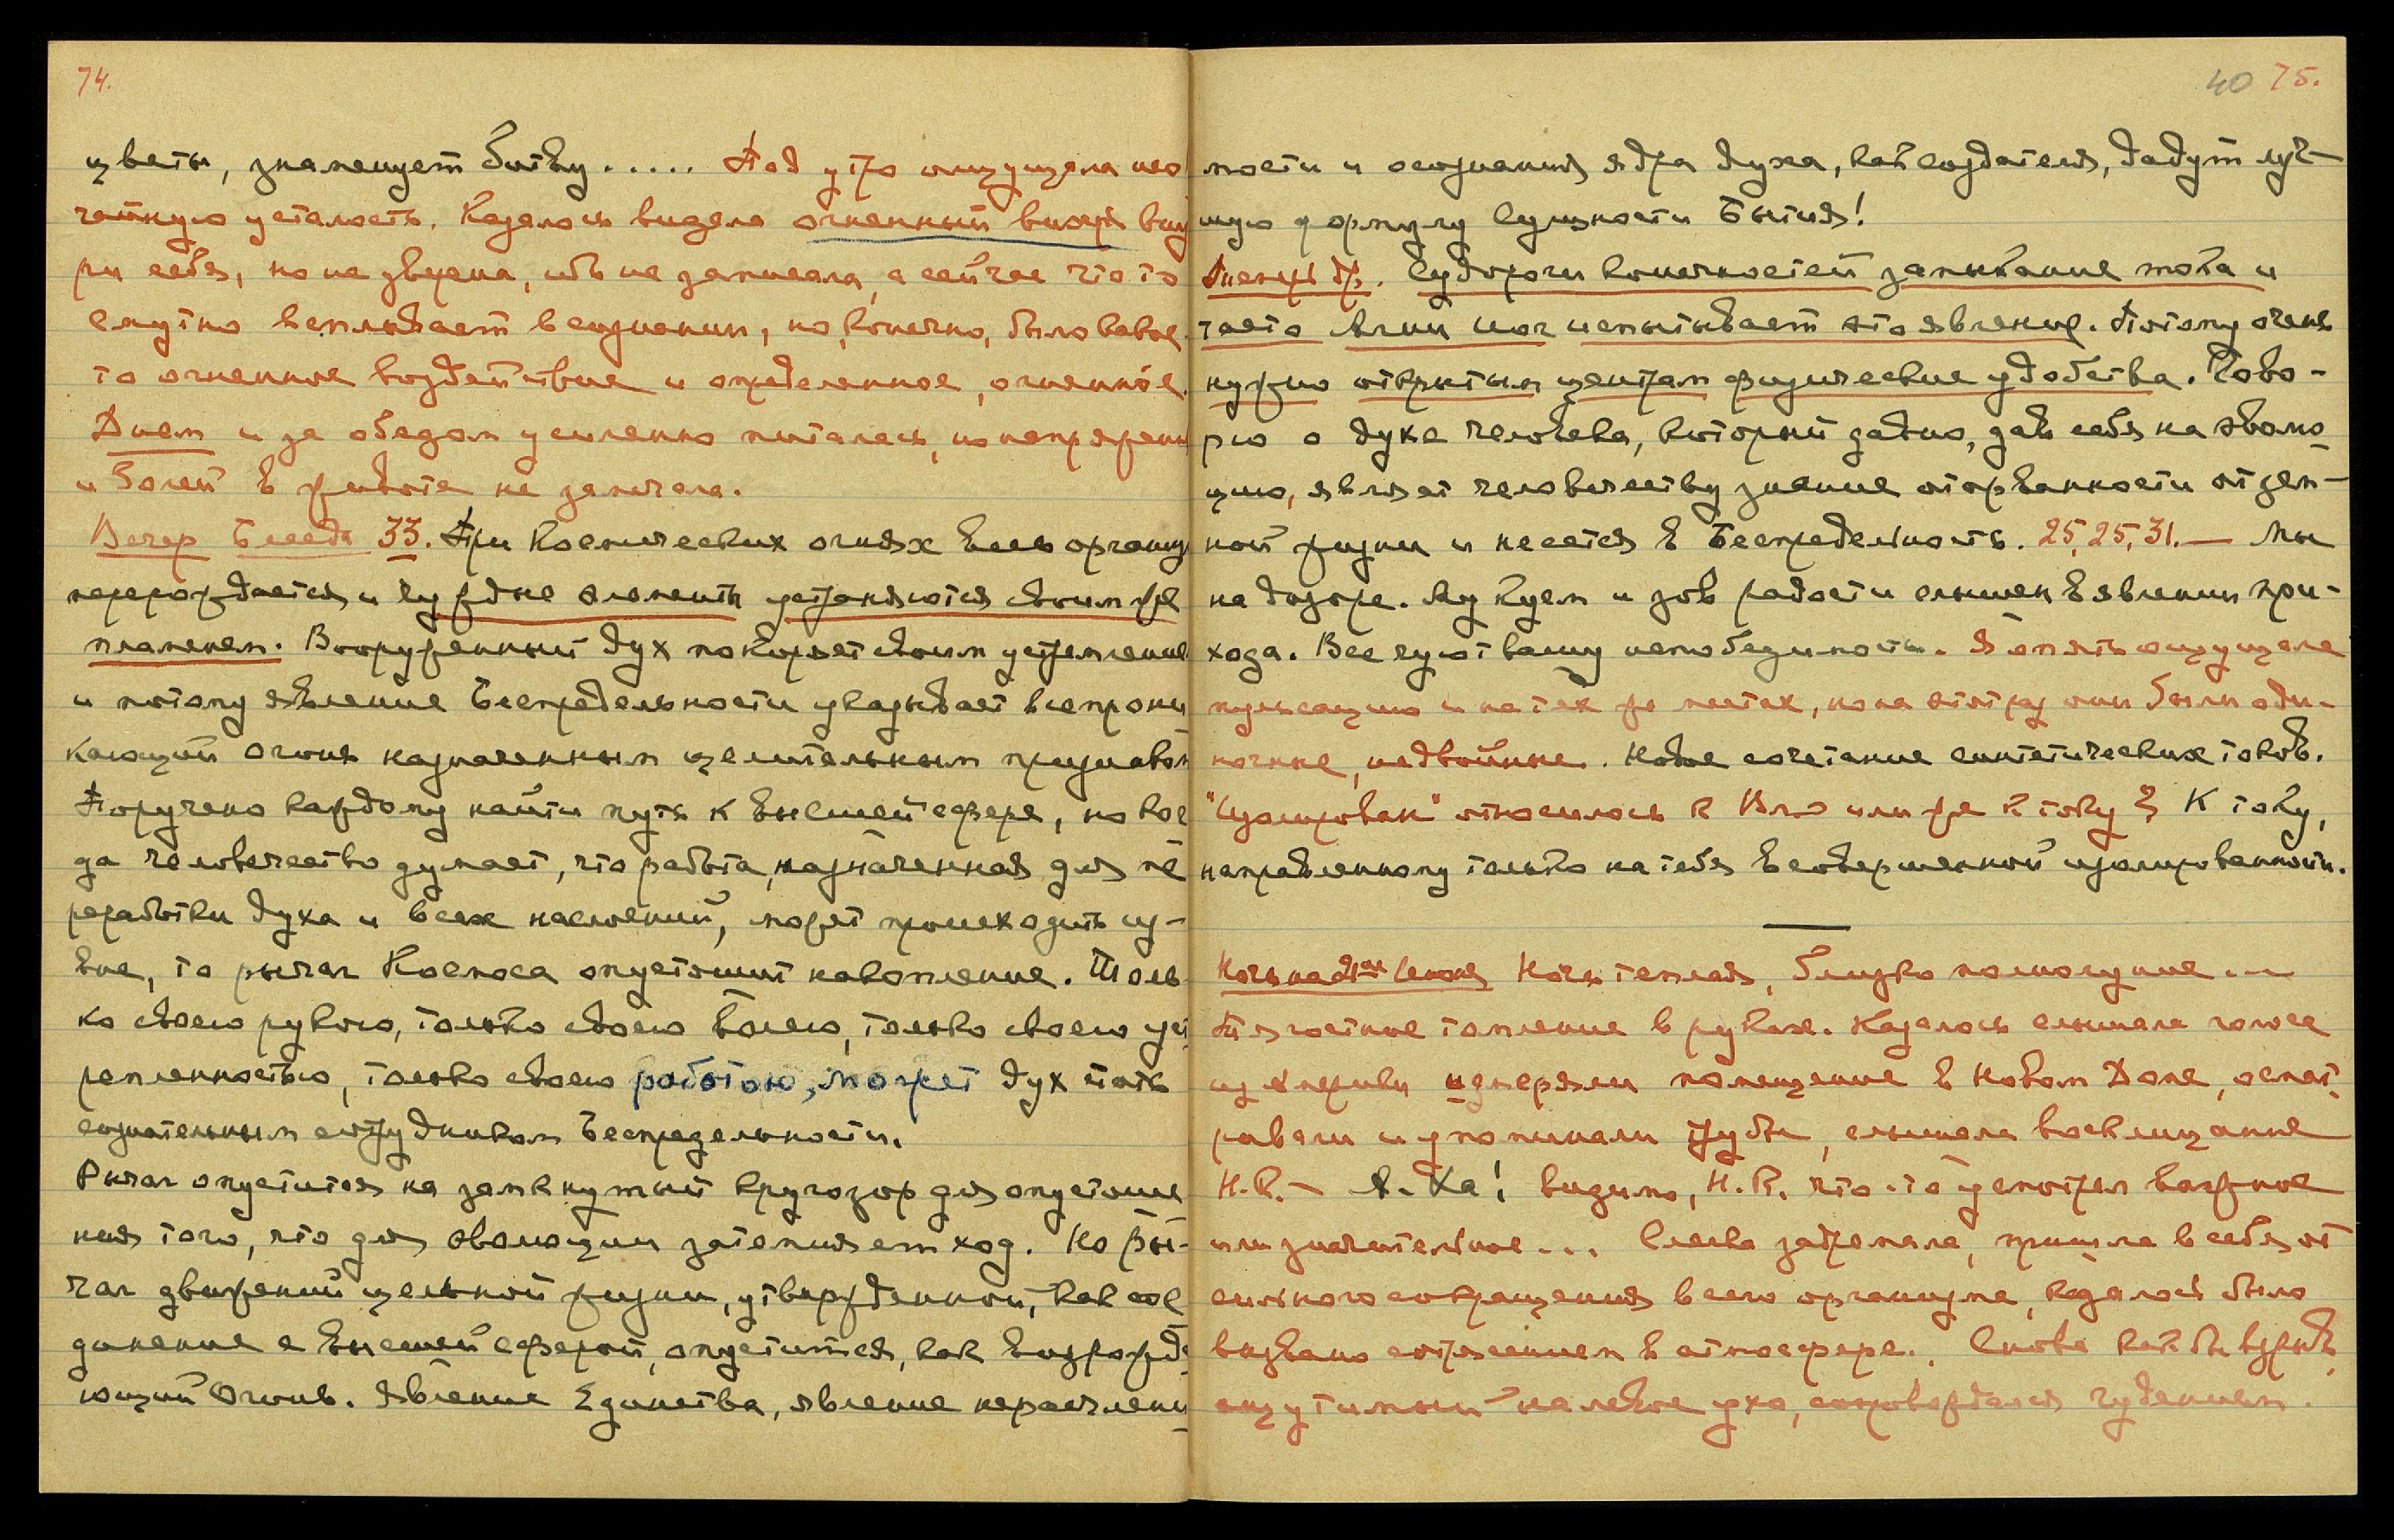 74.
цветы, знаменует битву..... Под утро ощущала нео
чатную усталость. Казалось видела огненный вихрь внут
ри себя, но не уверена, ибо не записала, а сейчас что то
смутно всплывает в сознании, но, конечно, было какое
то огненное воздействие и определенное, огненное.
Днем и за обедом усиленно питалась, но напряжени
и болей в животе не замечала.
Вечер Беседа 33. При Космических огнях весь организ
перерождается и чуждые элементы устраняются своим же
пламенем. Вооруженный дух покоряет своим устремление
и потому явление Беспредельности указывает всепрони
кающий огонь назначенным целительным
Поручено каждому найти путь к высшей сфере, но ког
да человечество думает, что работа, назначенная для пе
реработки духа и всех наслоений, может происходить из-
вне, то рычаг Космоса опустошит накопление. Толь
ко своею рукою, только своею волею, только своею уст
ремленностью, только своею работою, может дух стать
сознательным сотрудником Беспредельности.
Рычаг опустится на замкнутый кругозор для опустоше
ния того, что для эволюции затемняет ход. Но ры-
чаг движений цельной жизни, утвержденной, как сое
динение с высшей сферой, опустится, как возрожда
ющий Огонь. Явление Единства, явление нерасчлени
40 75.
мости и осознания ядра духа, как создателя, дадут луч-
шую формулу Сущности Бытия!
Судороги конечностей замыкание тока и
часто Агни Иог испытывает это явление. Потому очень
нужно открытым центрам физические удобства. Гово-
рю о духе человека, который давно, дав себя на эволю
цию, являет человечеству знание оторванности от зем-
ной жизни и несется в Беспредельность. 25, 25, 31.— Мы
на дозоре. Луч куем и зов радости слышен в явлении при-
хода. Все чуют вашу непобедимость. Я опять ощущала
пульсацию и на тех же местах, но на этот раз они были оди-
ночные, не двойные. Новое сочетание синтетических токов.
"Изолирован" относилось к Вл-ю или же к току? К току,
направленному только на тебя в совершенной изолированности.
Ночь на Июня Ночь теплая, близко полнолуние...
Тягостное томление в руках. Казалось слышала голоса
из Америки измеряли помещение в Новом Доме, осмат
ривали и упоминали трубы, слышала восклицание
Н.К. – А-ха! видимо, Н.К. что-то усмотрел важное
или значительное... Слегка задремала, пришла в себя от
сильного сокращения всего организма, казалось было
вызвано сотрясением в атмосфере. Снова как бы взрыв
ощутимый на левое ухо, сопровождался гудением.